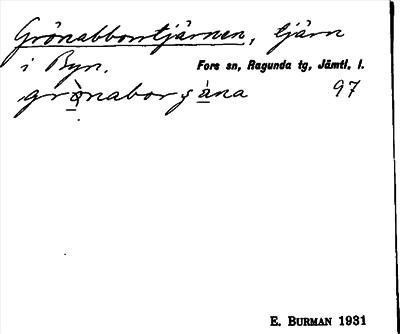 Grönabborrtjärnen, tjärn
i Byn. Fors sn, Ragunda tg, Jämtl. l.
grònaborşàna 97
E. BURMAN 1931